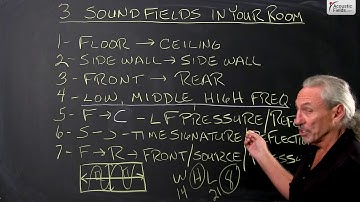 Acoustic Fields
3 SOUND FIELDS IN YOUR ROOM
1- FLOOR → CEILING
2- SIDE WALL → SIDE WALL
3- FRONT → REAR
4- LOW, MIDDLE HIGH FREQ.
5- F → C - LF PRESSURE/REF
6- S → - TIME SIGNATURE/REFLECTION
7- F → R → FRONT/SOURCE/
W H L 4
14 21